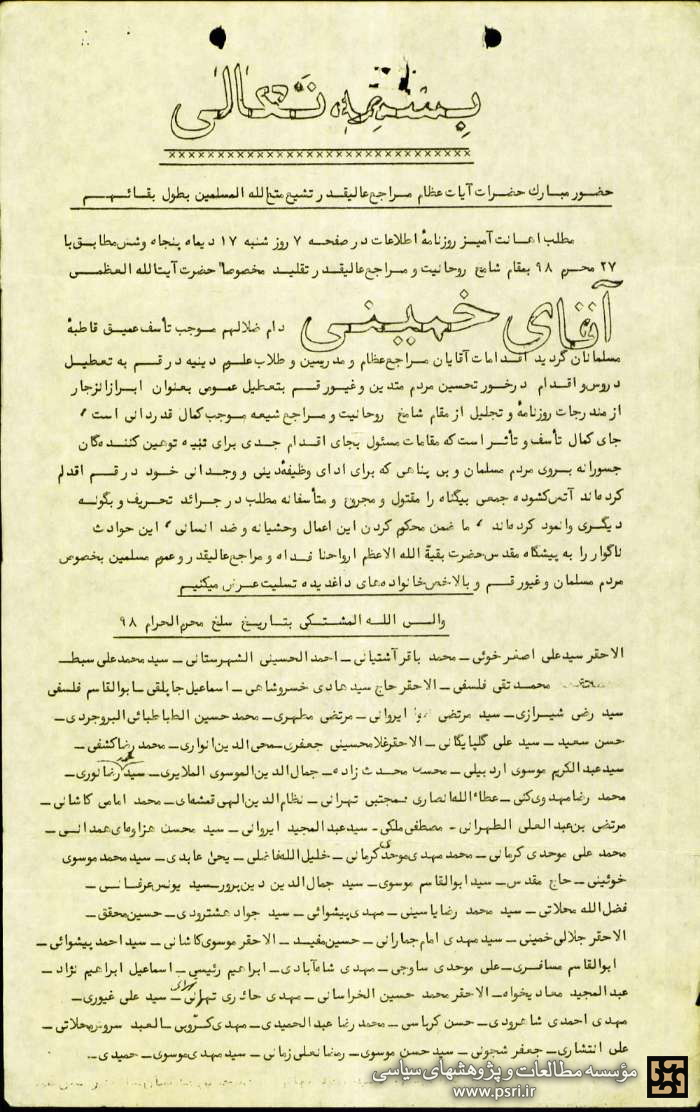 بسمه تعالی
××××××××××××××××××××××××××××××
حضور مبارك حضرات آیات عظام مراجع عالیقدر تشیع متع الله المسلمین بطول بقائهم
مطلب اهانت آمیز روزنامهٔ اطلاعات در صفحه ۷ روز شنبه ۱۷ دیماه پنجاه وشش مطابق با
۲۷ محرم ۹۸ بمقام شامخ روحانیت و مراجع عالیقدر تقلید مخصوصا" حضرت آیت الله العظمی
آقای خمینی دام ظلالهم موجب تأسف عمیق قاطبهٔ
مسلمانان گردید اقدامات آقایان مراجع عظام و مدرسین و طلاب علوم دینیه در قم به تعطیل
دروس و اقدام درخور تحسین مردم متدین و غیور قم بتعطیل عمومی بعنوان ابراز انزجار
از مندرجات روزنامهٔ و تجلیل از مقام شامخ روحانیت و مراجع شیعه موجب کمال قدردانی است ،
جای کمال تأسف و تأثر است که مقامات مسئول بجای اقدام جدی برای تنبیه توهین کننده گان
جسورانه بروی مردم مسلمان و بی پناهی که برای ادای وظیفهٔ دینی و وجدانی خود در قم اقدام
کرده اند آتش گشوده جمعی بیگناه را مقتول و مجروح و متأسفانه مطلب در جرائد تحریف و بگونه
دیگری وانمود کرده اند ، ما ضمن محکوم کردن این اعمال وحشیانه و ضد انسانی ، این حوادث
ناگوار را به پیشگاه مقدس حضرت بقیة الله الاعظم ارواحنا فداه و مراجع عالیقدر و عموم مسلمین بخصوص
مردم مسلمان و غیور قم و بالاخص خانواده های داغدیده تسلیت عرض میکنیم
والی الله المشتکی بتاریخ سلخ محرم الحرام ۹۸
الاحقر سید علی اصغر خوئی ـ محمد باقر آشتیانی ـ احمد الحسینی الشهرستانی ـ سید محمد علی سبط ـ
محمد تقی فلسفی ـ الاحقر حاج سید هادی خسروشاهی ـ اسماعیل جاپلقی ـ ابوالقاسم فلسفی
سید رضی شیرازی ـ سید مرتضی ایروانی ـ مرتضی مطهری ـ محمد حسین الطباطبائی البروجردی ـ
حسن سعید ـ سید علی گلپایگانی ـ الاحقر غلامحسینی جعفری ـ محی الدین انواری ـ محمد رضا کشفی ـ
سید عبدالکریم موسوی اردبیلی ـ محسن محدث زاده ـ جمال الدین الموسوی الملایری ـ سید محمد رضا نوری ـ
محمد رضا مهدوی کنی ـ عطاء الله انصاری ـ مجتبی تهرانی ـ نظام الدین الهی قمشه ای ـ محمد امامی کاشانی ـ
مرتضی بن عبدالعلی الطهرانی ـ مصطفی ملکی ـ سید عبدالمجید ایروانی ـ سید محسن هزاوه ای همدانی ـ
محمد علی موحدی کرمانی ـ محمد مهدی موحدی کرمانی ـ خلیل الله فاضلی ـ یحیی عابدی ـ سید محمد موسوی
خوئینی ـ حاج مقدس ـ سید ابوالقاسم موسوی ـ سید جمال الدین دین پرور ـ سید یونس عرفانی ـ
فضل الله محلاتی ـ سید محمد رضا یاسینی ـ مهدی پیشوائی ـ سید جواد هشترودی ـ حسین محقق ـ
الاحقر جلالی خمینی ـ سید مهدی امام جمارانی ـ حسین مفید ـ الاحقر موسوی کاشانی ـ سید احمد پیشوائی ـ
ابوالقاسم مسافری ـ علی موحدی ساوجی ـ مهدی شاه آبادی ـ ابراهیم رئیسی ـ اسماعیل ابراهیم نژاد ـ
عبدالمجید معادیخواه ـ الاحقر محمد حسین الخراسانی ـ مهدی حائری تهرانی ـ سید علی غیوری ـ
مهدی احمدی شاهرودی ـ حسن کرباسی ـ محمد رضا عبدالحمیدی ـ مهدی کروبی ـ العبد سروش محلاتی ـ
علی انتشاری ـ جعفر شجونی ـ سید حسن موسوی ـ رمضانعلی زمانی ـ سید مهدی موسوی ـ حمیدی ـ
مؤسسه مطالعات و پژوهشهای سیاسی
www.psri.ir